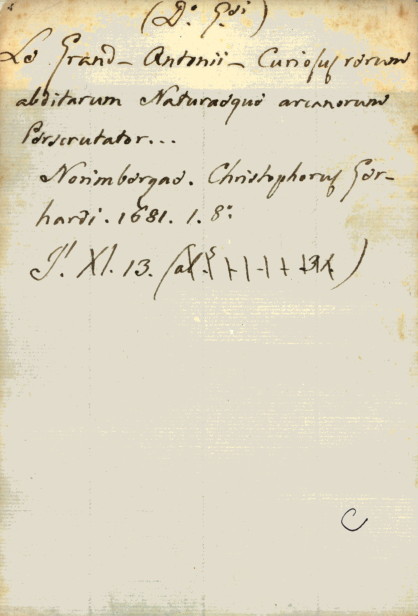 (D.º G.si)
Le Grand - Antonii - Curiosus rerum
abditarum Naturaeque arcanorum
Perscrutator...
Norimbergae. Christophorus Ger-
hardi. 1681. 1. 8º
J! XI. 13. (al.
C